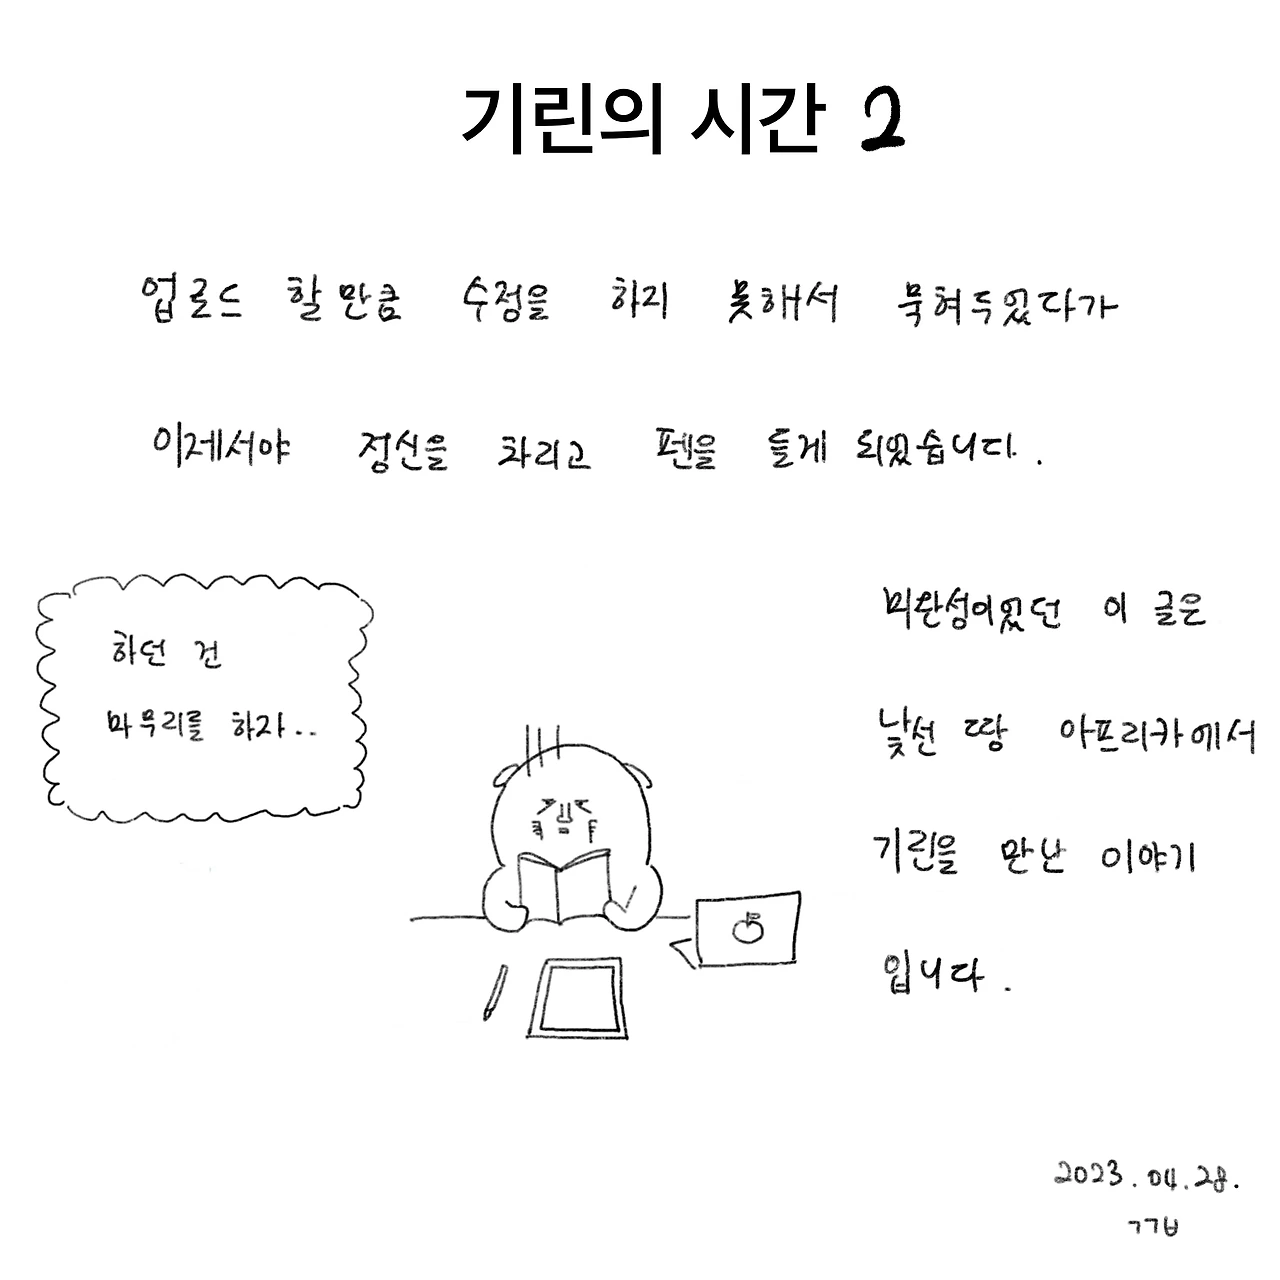 기린의 시간 2
업로드 할 만큼 수정을 하지 못해서 묵혀두었다가
이제서야 정신을 차리고 펜을 들게 되었습니다.
하던 건
마무리를 하자..
미완성이었던 이 글은
낯선 땅 아프리카에서
기린을 만난 이야기
입니다.
2023.04.28.
ㄱㄱㅂ